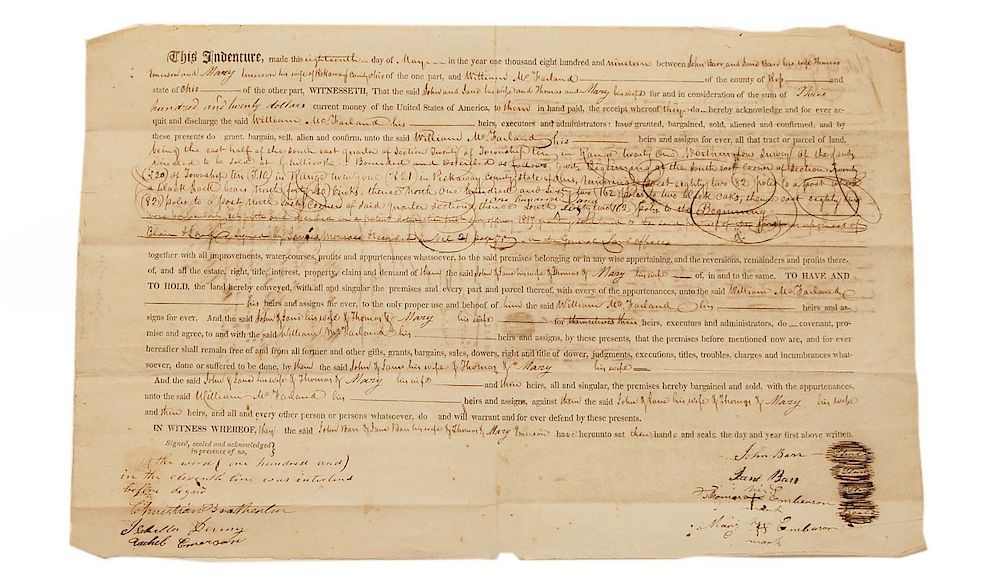 This Indenture, made this eighteenth day of May in the year one thousand eight hundred and nineteen between John Barr and Jane Barr his wife Thomas
Emerson and Mary Emerson his wife of Pickaway County Ohio of the one part, and William McFarland of the county of Ross and
state of Ohio of the other part, WITNESSETH, That the said John and Jane his wife and Thomas and Mary his wife for and in consideration of the sum of Three
hundred and twenty dollars current money of the United States of America, to them in hand paid, the receipt whereof they do hereby acknowledge and for ever ac-
quit and discharge the said William McFarland his heirs, executors and administrators: have granted, bargained, sold, aliened and confirmed, and by
these presents do grant, bargain, sell, alien and confirm, unto the said William McFarland his heirs and assigns for ever, all that tract or parcel of land,
being the east half of the south east quarter of Section Twenty of Township ten in Range twenty one
directed to be sold at Chillicothe Bounded and described as follows (to wit) Beginning at the south east corner of section twenty
(S20) of Township ten (T.10) in Range twenty one (R21) in Pickaway County state of Ohio, running west eighty two (82) poles to a post
a black Jack bears North forty (40) links, thence North One hundred and sixty two (162) poles to two Black Oaks, thence east eighty two
(82) poles to a post North East corner of said quarter section thence South one hundred and sixty two (162) poles to the Beginning
together with all improvements, water-courses, profits and appurtenances whatsoever, to the said premises belonging or in any wise appertaining, and the reversions, remainders and profits there-
of, and all the estate, right, title, interest, property, claim and demand of them the said John & Jane his wife & Thomas & Mary his wife of, in and to the same. TO HAVE AND
TO HOLD, the land hereby conveyed, with all and singular the premises and every part and parcel thereof, with every of the appurtenances, unto the said William McFarland
his heirs and assigns for ever, to the only proper use and behoof of him the said William McFarland his heirs and as-
signs for ever. And the said John & Jane his wife & Thomas & Mary his wife for themselves their heirs, executors and administrators, do covenant, pro-
mise and agree, to and with the said William McFarland his heirs and assigns, by these presents, that the premises before mentioned now are, and for ever
hereafter shall remain free of and from all former and other gifts, grants, bargains, sales, dowers, right and title of dower, judgments, executions, titles, troubles, charges and incumbrances what-
soever, done or suffered to be done, by them the said John & Jane his wife & Thomas & Mary his wife
And the said John & Jane his wife & Thomas & Mary his wife and their heirs, all and singular, the premises hereby bargained and sold, with the appurtenances,
unto the said William McFarland his heirs and assigns, against them the said John & Jane his wife & Thomas & Mary his wife
and their heirs, and all and every other person or persons whatsoever, do and will warrant and for ever defend by these presents.
IN WITNESS WHEREOF, they the said John Barr & Jane Barr his wife & Thomas & Mary Emerson have hereunto set their hands and seals, the day and year first above written.
Signed, sealed and acknowledged
in presence of us,
(the word one hundred and)
in the eleventh line was interlined
before signed
Christian Brotherlin
Rachel Emerson
John Barr
Jane Barr
Thomas Emberson
Mary Emberson
mark